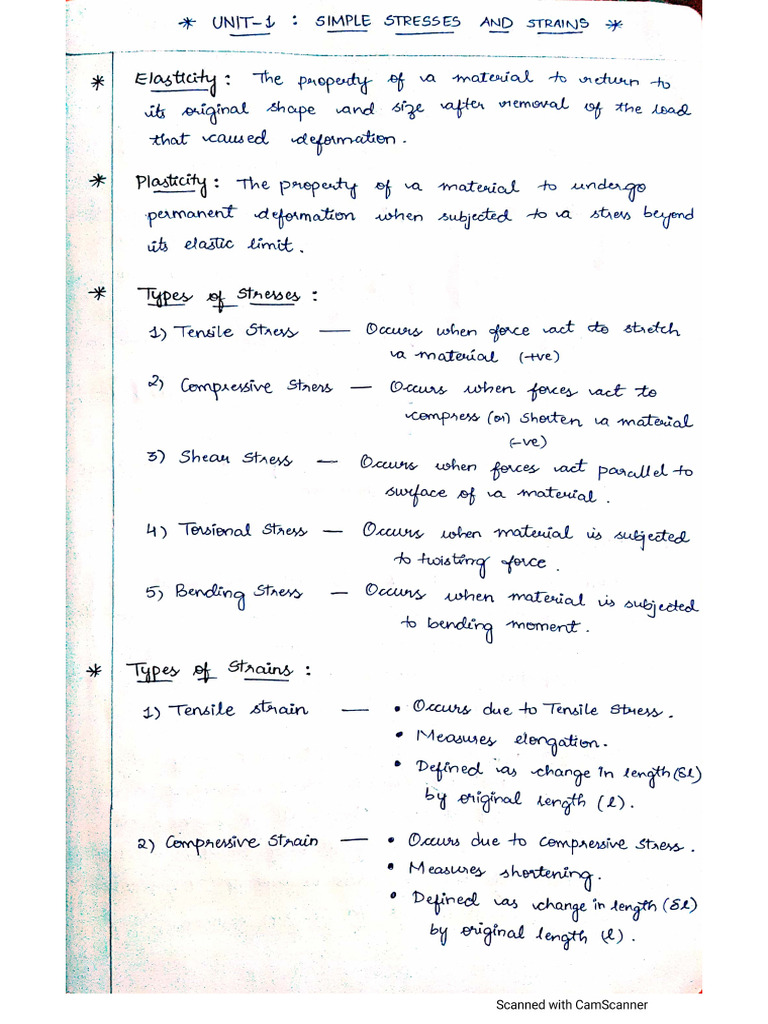 * UNIT-1 : SIMPLE STRESSES AND STRAINS *
* Elasticity : The property of a material to return to
its original shape and size after removal of the load
that caused deformation.
* Plasticity : The property of a material to undergo
permanent deformation when subjected to a stress beyond
its elastic limit.
* Types of Stresses :
1) Tensile Stress — Occurs when force act to stretch
a material (+ve)
2) Compressive Stress — Occurs when forces act to
compress (or) shorten a material
(-ve)
3) Shear Stress — Occurs when forces act parallel to
surface of a material.
4) Torsional Stress — Occurs when material is subjected
to twisting force.
5) Bending Stress — Occurs when material is subjected
to bending moment.
* Types of Strains :
1) Tensile strain — • Occurs due to Tensile Stress.
• Measures elongation.
• Defined as change in length (δl)
by original length (l).
2) Compressive Strain — • Occurs due to compressive stress.
• Measures shortening.
• Defined as change in length (δl)
by original length (l).
Scanned with CamScanner